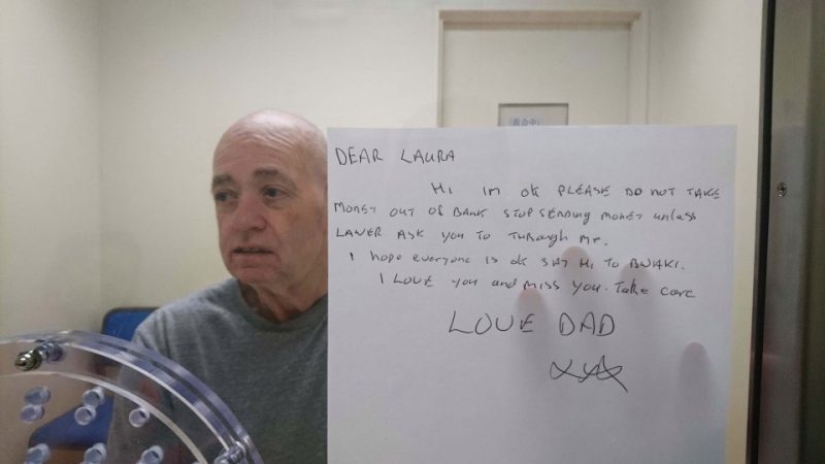 DEAR LAURA
Hi im ok PLEASE DO NOT TAKE
MONEY OUT OF BANK STOP SENDING MONEY unless
LAWER ASK you TO THROUGH ME.
I hope everyone is ok SAY Hi TO
I LOVE you and miss you. Take care
LOVE DAD
xxx